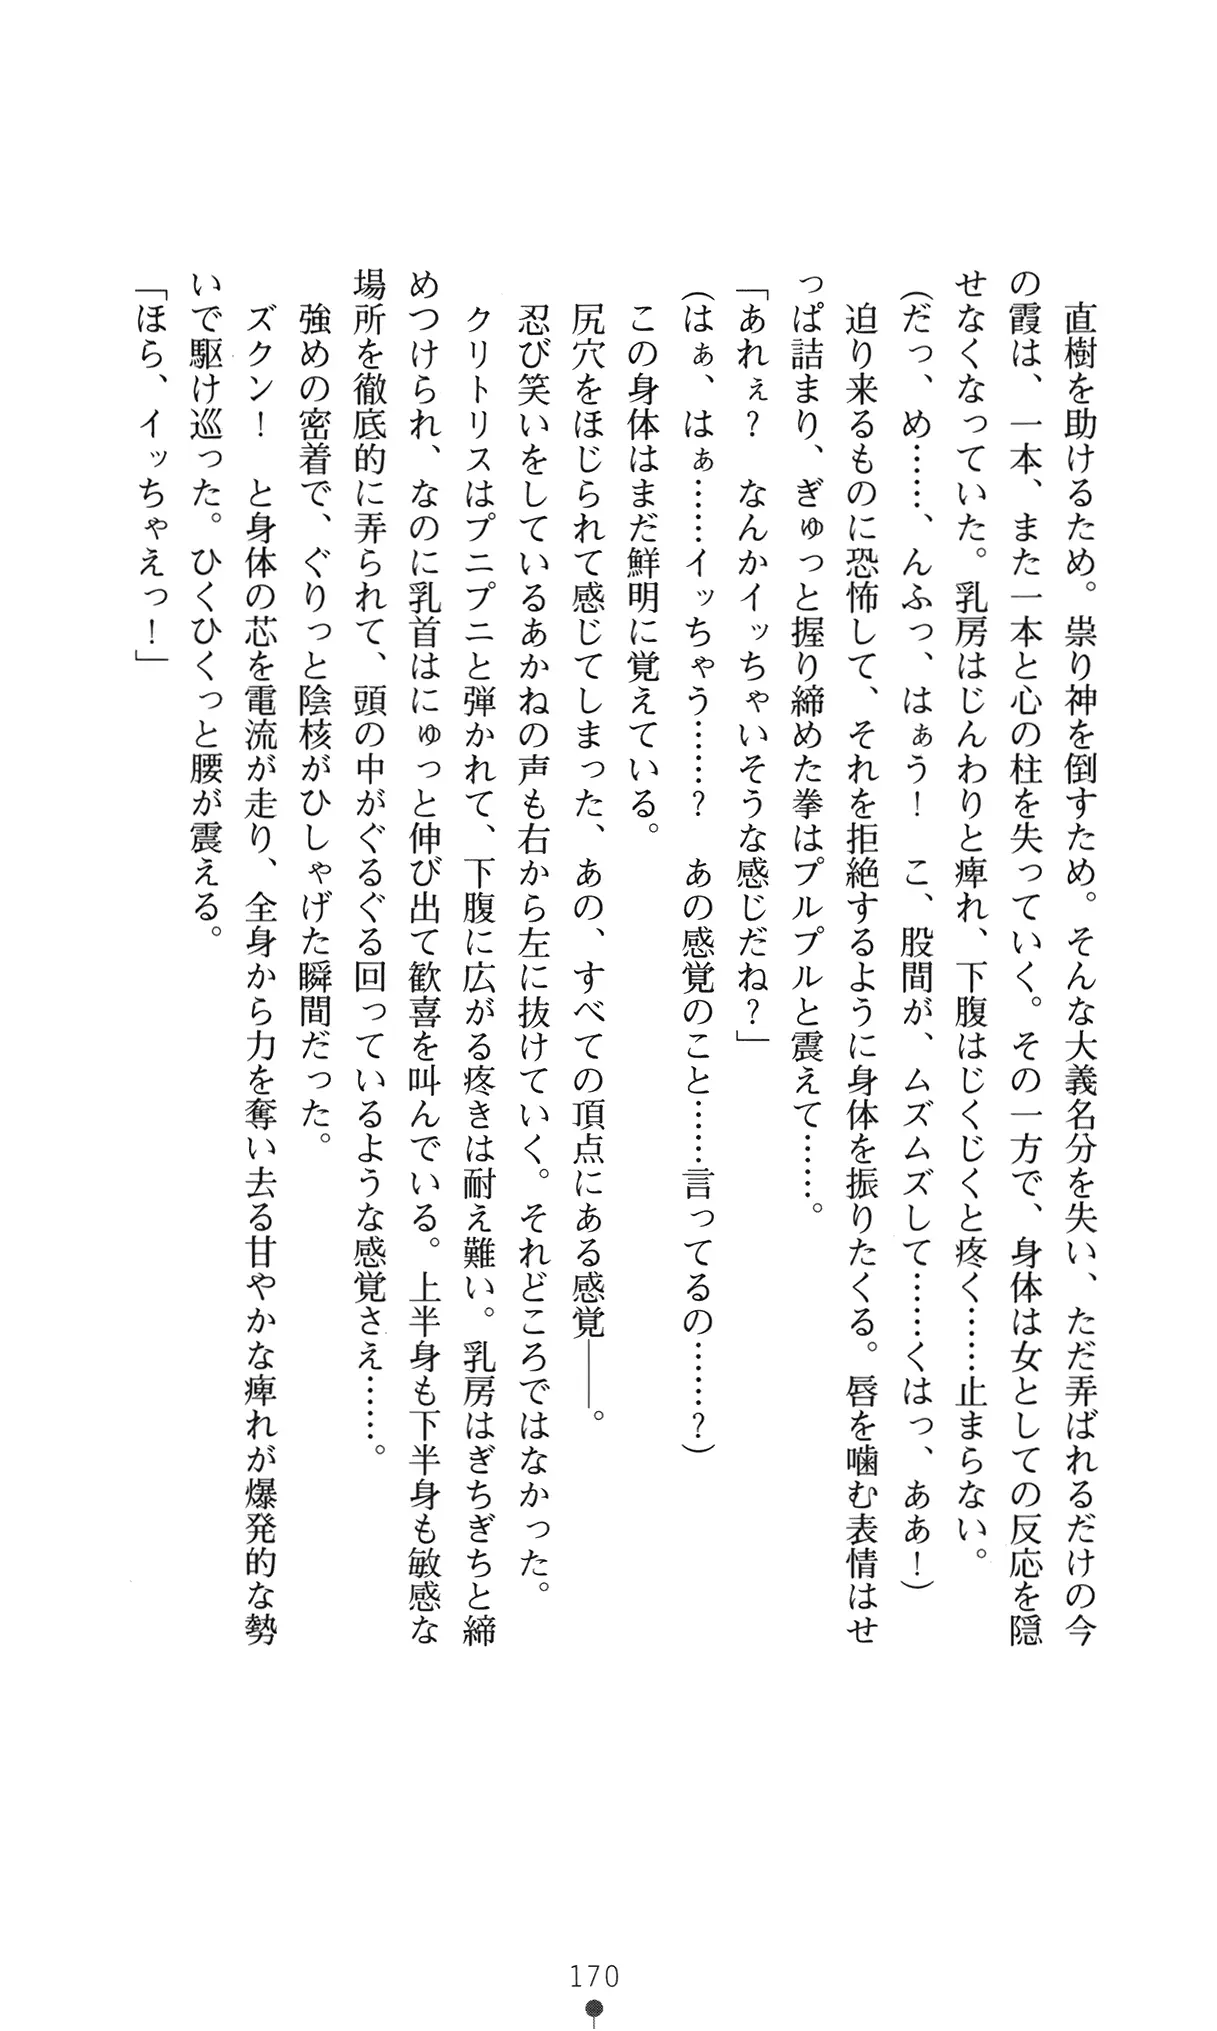 直樹を助けるため。祟り神を倒すため。そんな大義名分を失い、ただ弄ばれるだけの今
の霞は、一本、また一本と心の柱を失っていく。その一方で、身体は女としての反応を隠
せなくなっていた。乳房はじんわりと痺れ、下腹はじくじくと疼く……止まらない。
(だっ、め……、んふっ、はぁう！　こ、股間が、ムズムズして……くはっ、ああ！)
迫り来るものに恐怖して、それを拒絶するように身体を振りたくる。唇を噛む表情はせ
っぱ詰まり、ぎゅっと握り締めた拳はプルプルと震えて……。
「あれぇ？　なんかイッちゃいそうな感じだね？」
(はぁ、はぁ……イッちゃう……？　あの感覚のこと……言ってるの……？)
この身体はまだ鮮明に覚えている。
尻穴をほじられて感じてしまった、あの、すべての頂点にある感覚――。
忍び笑いをしているあかねの声も右から左に抜けていく。それどころではなかった。
クリトリスはプニプニと弾かれて、下腹に広がる疼きは耐え難い。乳房はぎちぎちと締
めつけられ、なのに乳首はにゅっと伸び出て歓喜を叫んでいる。上半身も下半身も敏感な
場所を徹底的に弄られて、頭の中がぐるぐる回っているような感覚さえ……。
強めの密着で、ぐりっと陰核がひしゃげた瞬間だった。
ズクン！　と身体の芯を電流が走り、全身から力を奪い去る甘やかな痺れが爆発的な勢
いで駆け巡った。ひくひくっと腰が震える。
「ほら、イッちゃえっ！」
170